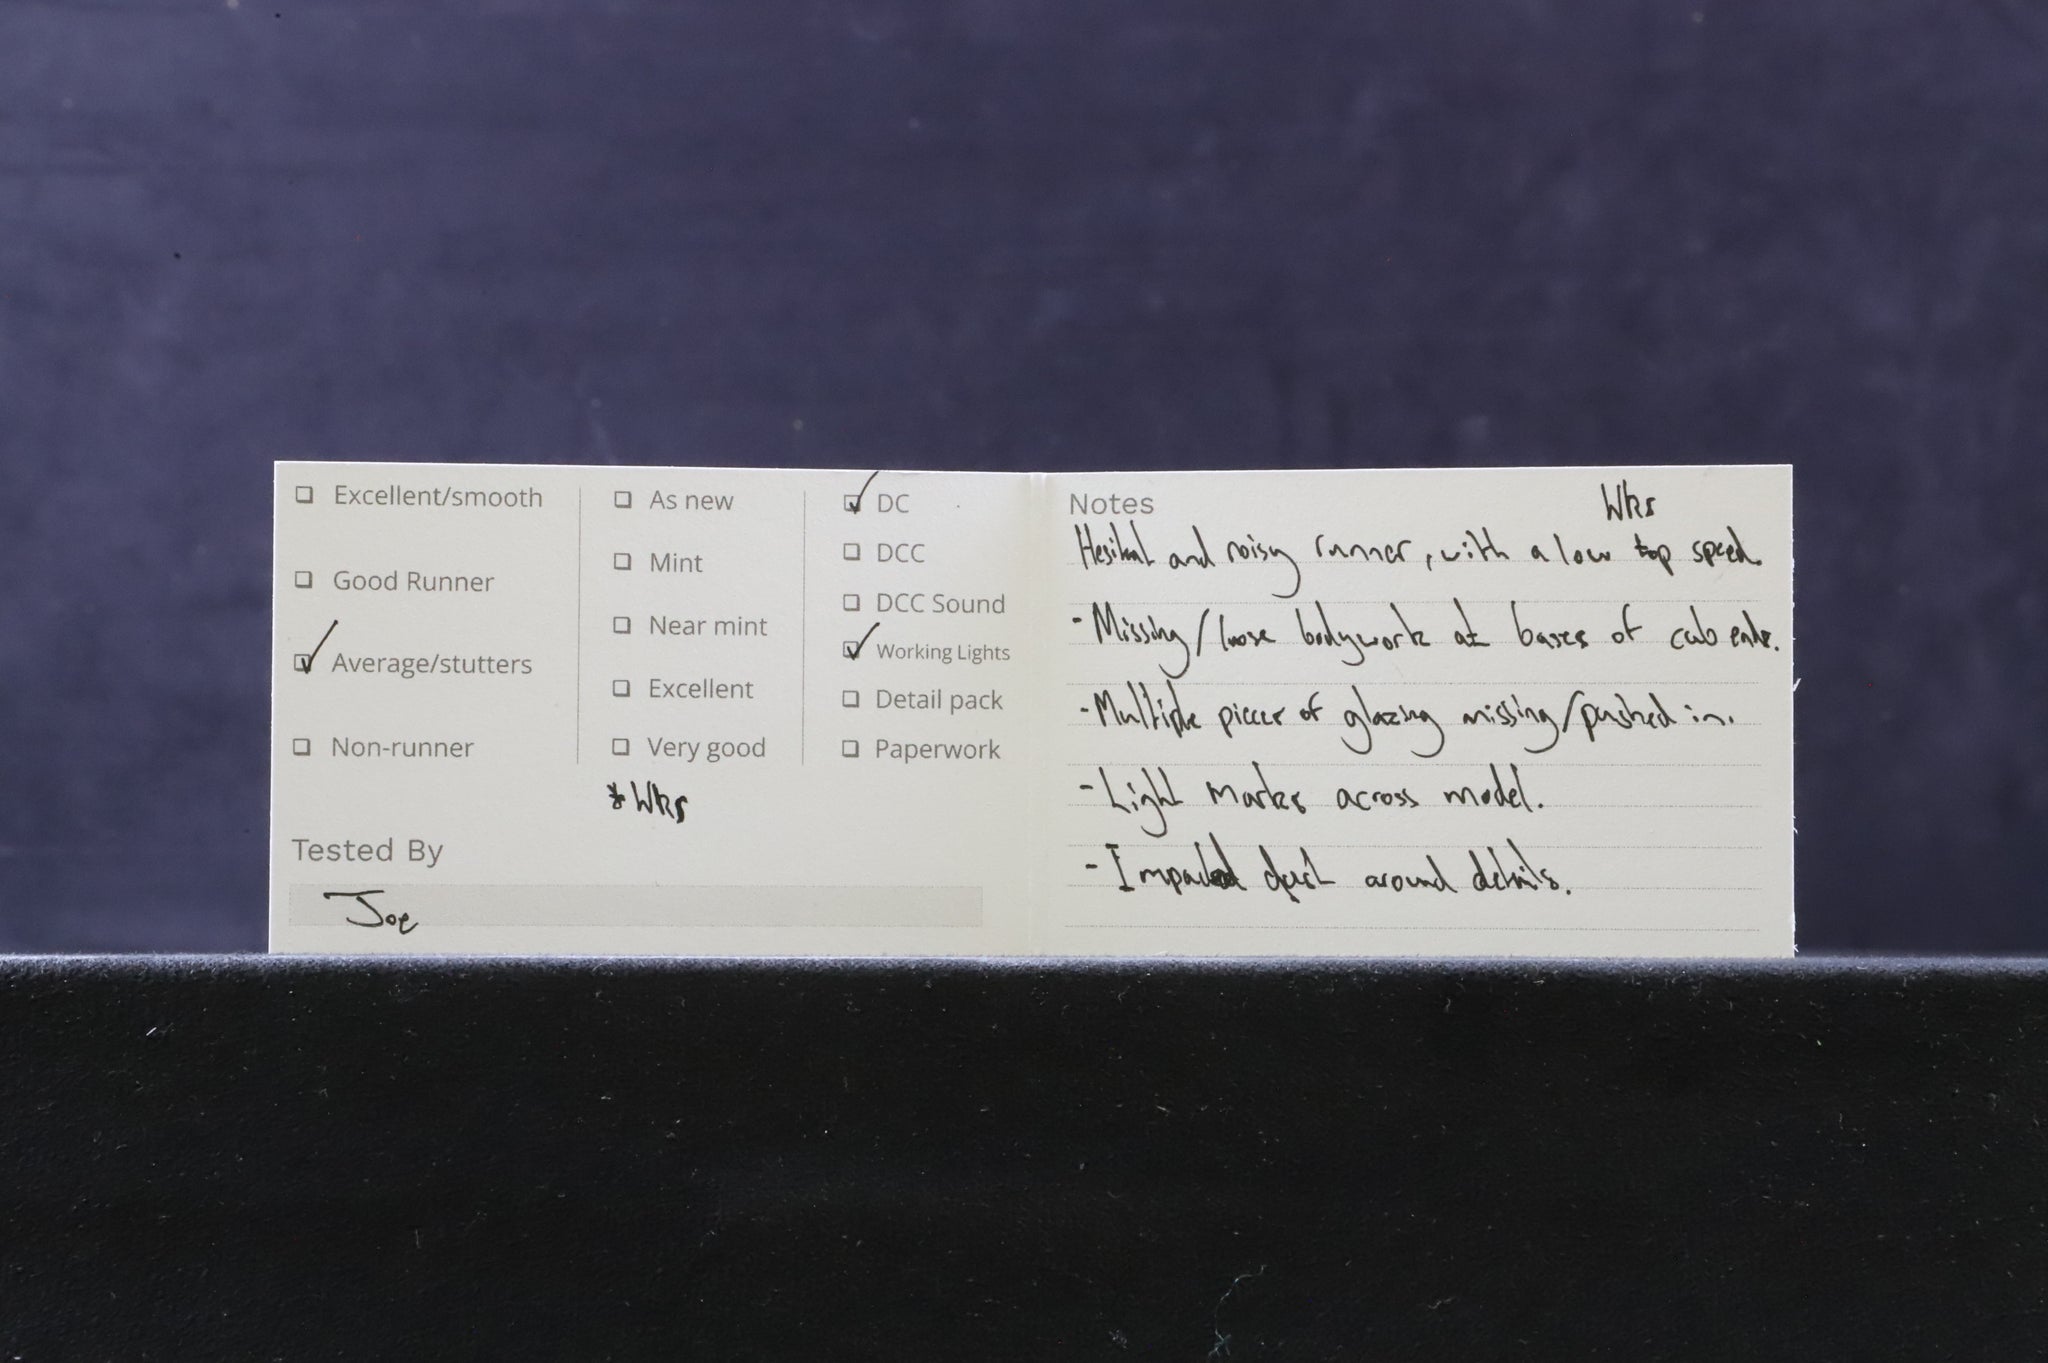 Excellent/smooth
Good Runner
Average/stutters
Non-runner
As new
Mint
Near mint
Excellent
Very good
*Wks
DC
DCC
DCC Sound
Working Lights
Detail pack
Paperwork
Tested By
Joe
Notes
Wks
Hesitant and noisy runner, with a low top speed.
- Missing/loose bodywork at bases of cab ends.
- Multiple pieces of glazing missing/pushed in.
- Light marks across model.
- Impacted dust around details.